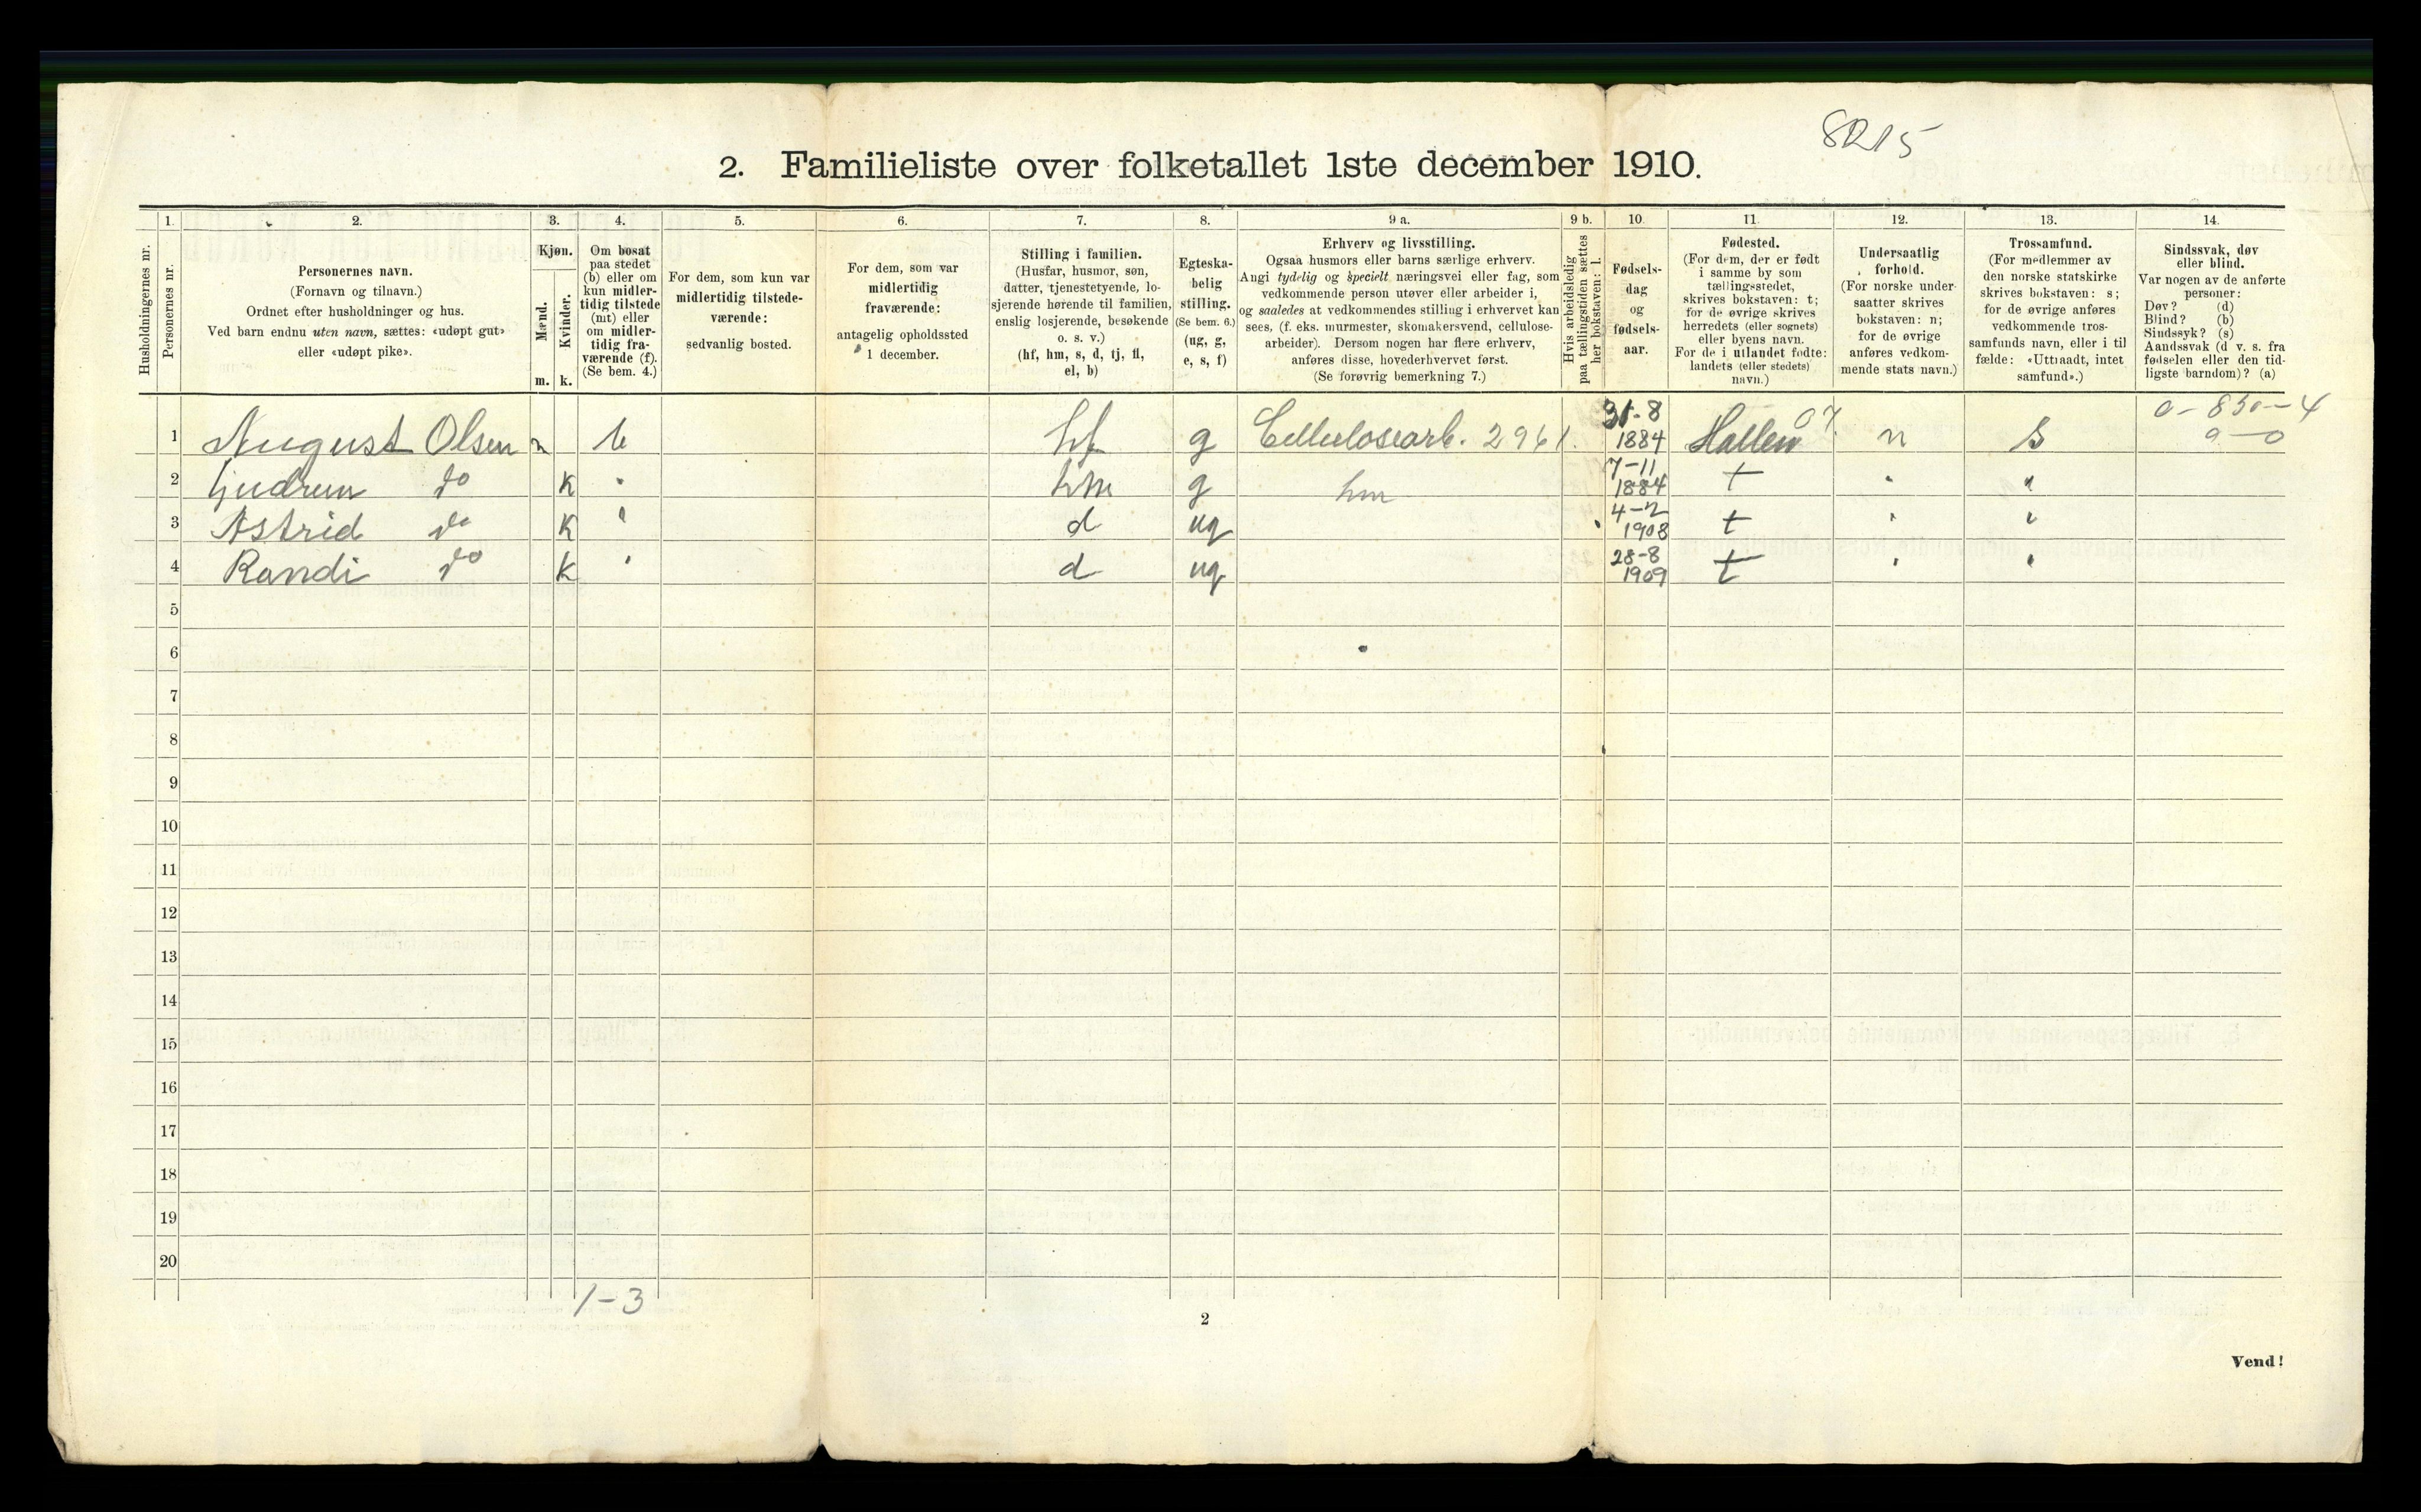 8215
2. Familieliste over folketallet 1ste december 1910.
1. 2. 3. 4. 5. 6. 7. 8. 9 a. 9 b. 10. 11. 12. 13. 14.
Husholdningernes nr.
Personernes nr.
Personernes navn.
(Fornavn og tilnavn.)
Ordnet efter husholdninger og hus.
Ved barn endnu uten navn, sættes: «udøpt gut»
eller «udøpt pike».
Kjøn.
Mænd.
Kvinder.
m. k.
Om bosat
paa stedet
(b) eller om
kun midler-
tidig tilstede
(mt) eller
om midler-
tidig fra-
værende (f).
(Se bem. 4.)
For dem, som kun var
midlertidig tilstede-
værende:
sedvanlig bosted.
For dem, som var
midlertidig
fraværende:
antagelig opholdssted
1 december.
Stilling i familien.
(Husfar, husmor, søn,
datter, tjenestetyende, lo-
sjerende hørende til familien,
enslig losjerende, besøkende
o. s. v.)
(hf, hm, s, d, tj, fl,
el, b)
Egteska-
belig
stilling.
(Se bem. 6.)
(ug, g,
e, s, f)
Erhverv og livsstilling.
Ogsaa husmors eller barns særlige erhverv.
Angi tydelig og specielt næringsvei eller fag, som
vedkommende person utøver eller arbeider i,
og saaledes at vedkommendes stilling i erhvervet kan
sees, (f. eks. murmester, skomakersvend, cellulose-
arbeider). Dersom nogen har flere erhverv,
anføres disse, hovederhvervet først.
(Se forøvrig bemerkning 7.)
Hvis arbeidsledig
paa tællingstiden sættes
her bokstaven: l.
Fødsels-
dag
og
fødsels-
aar.
Fødested.
(For dem, der er født
i samme by som
tællingsstedet,
skrives bokstaven: t;
for de øvrige skrives
herredets (eller sognets)
eller byens navn.
For de i utlandet fødte:
landets (eller stedets)
navn.)
Undersaatlig
forhold.
(For norske under-
saatter skrives
bokstaven: n;
for de øvrige
anføres vedkom-
mende stats navn.)
Trossamfund.
(For medlemmer av
den norske statskirke
skrives bokstaven: s;
for de øvrige anføres
vedkommende tros-
samfunds navn, eller i til
fælde: «Uttraadt, intet
samfund».)
Sindssvak, døv
eller blind.
Var nogen av de anførte
personer:
Døv? (d)
Blind? (b)
Sindssyk? (s)
Aandssvak (d v. s. fra
fødselen eller den tid-
ligste barndom)? (a)
0-850-4
0-0
1 August Olsen m b hf g Cellulosearb. 2961. 31-8 1884 07. n s
2 Gudrun do k " hm g hm 7-11 1884 t " "
3 Astrid do k " d ug 4-2 1908 t " "
4 Randi do k " d ug 28-8 1909 t " "
5
6
7
8
9
10
11
12
13
14
15
16
17
18
19
20
1-3
2
Vend!